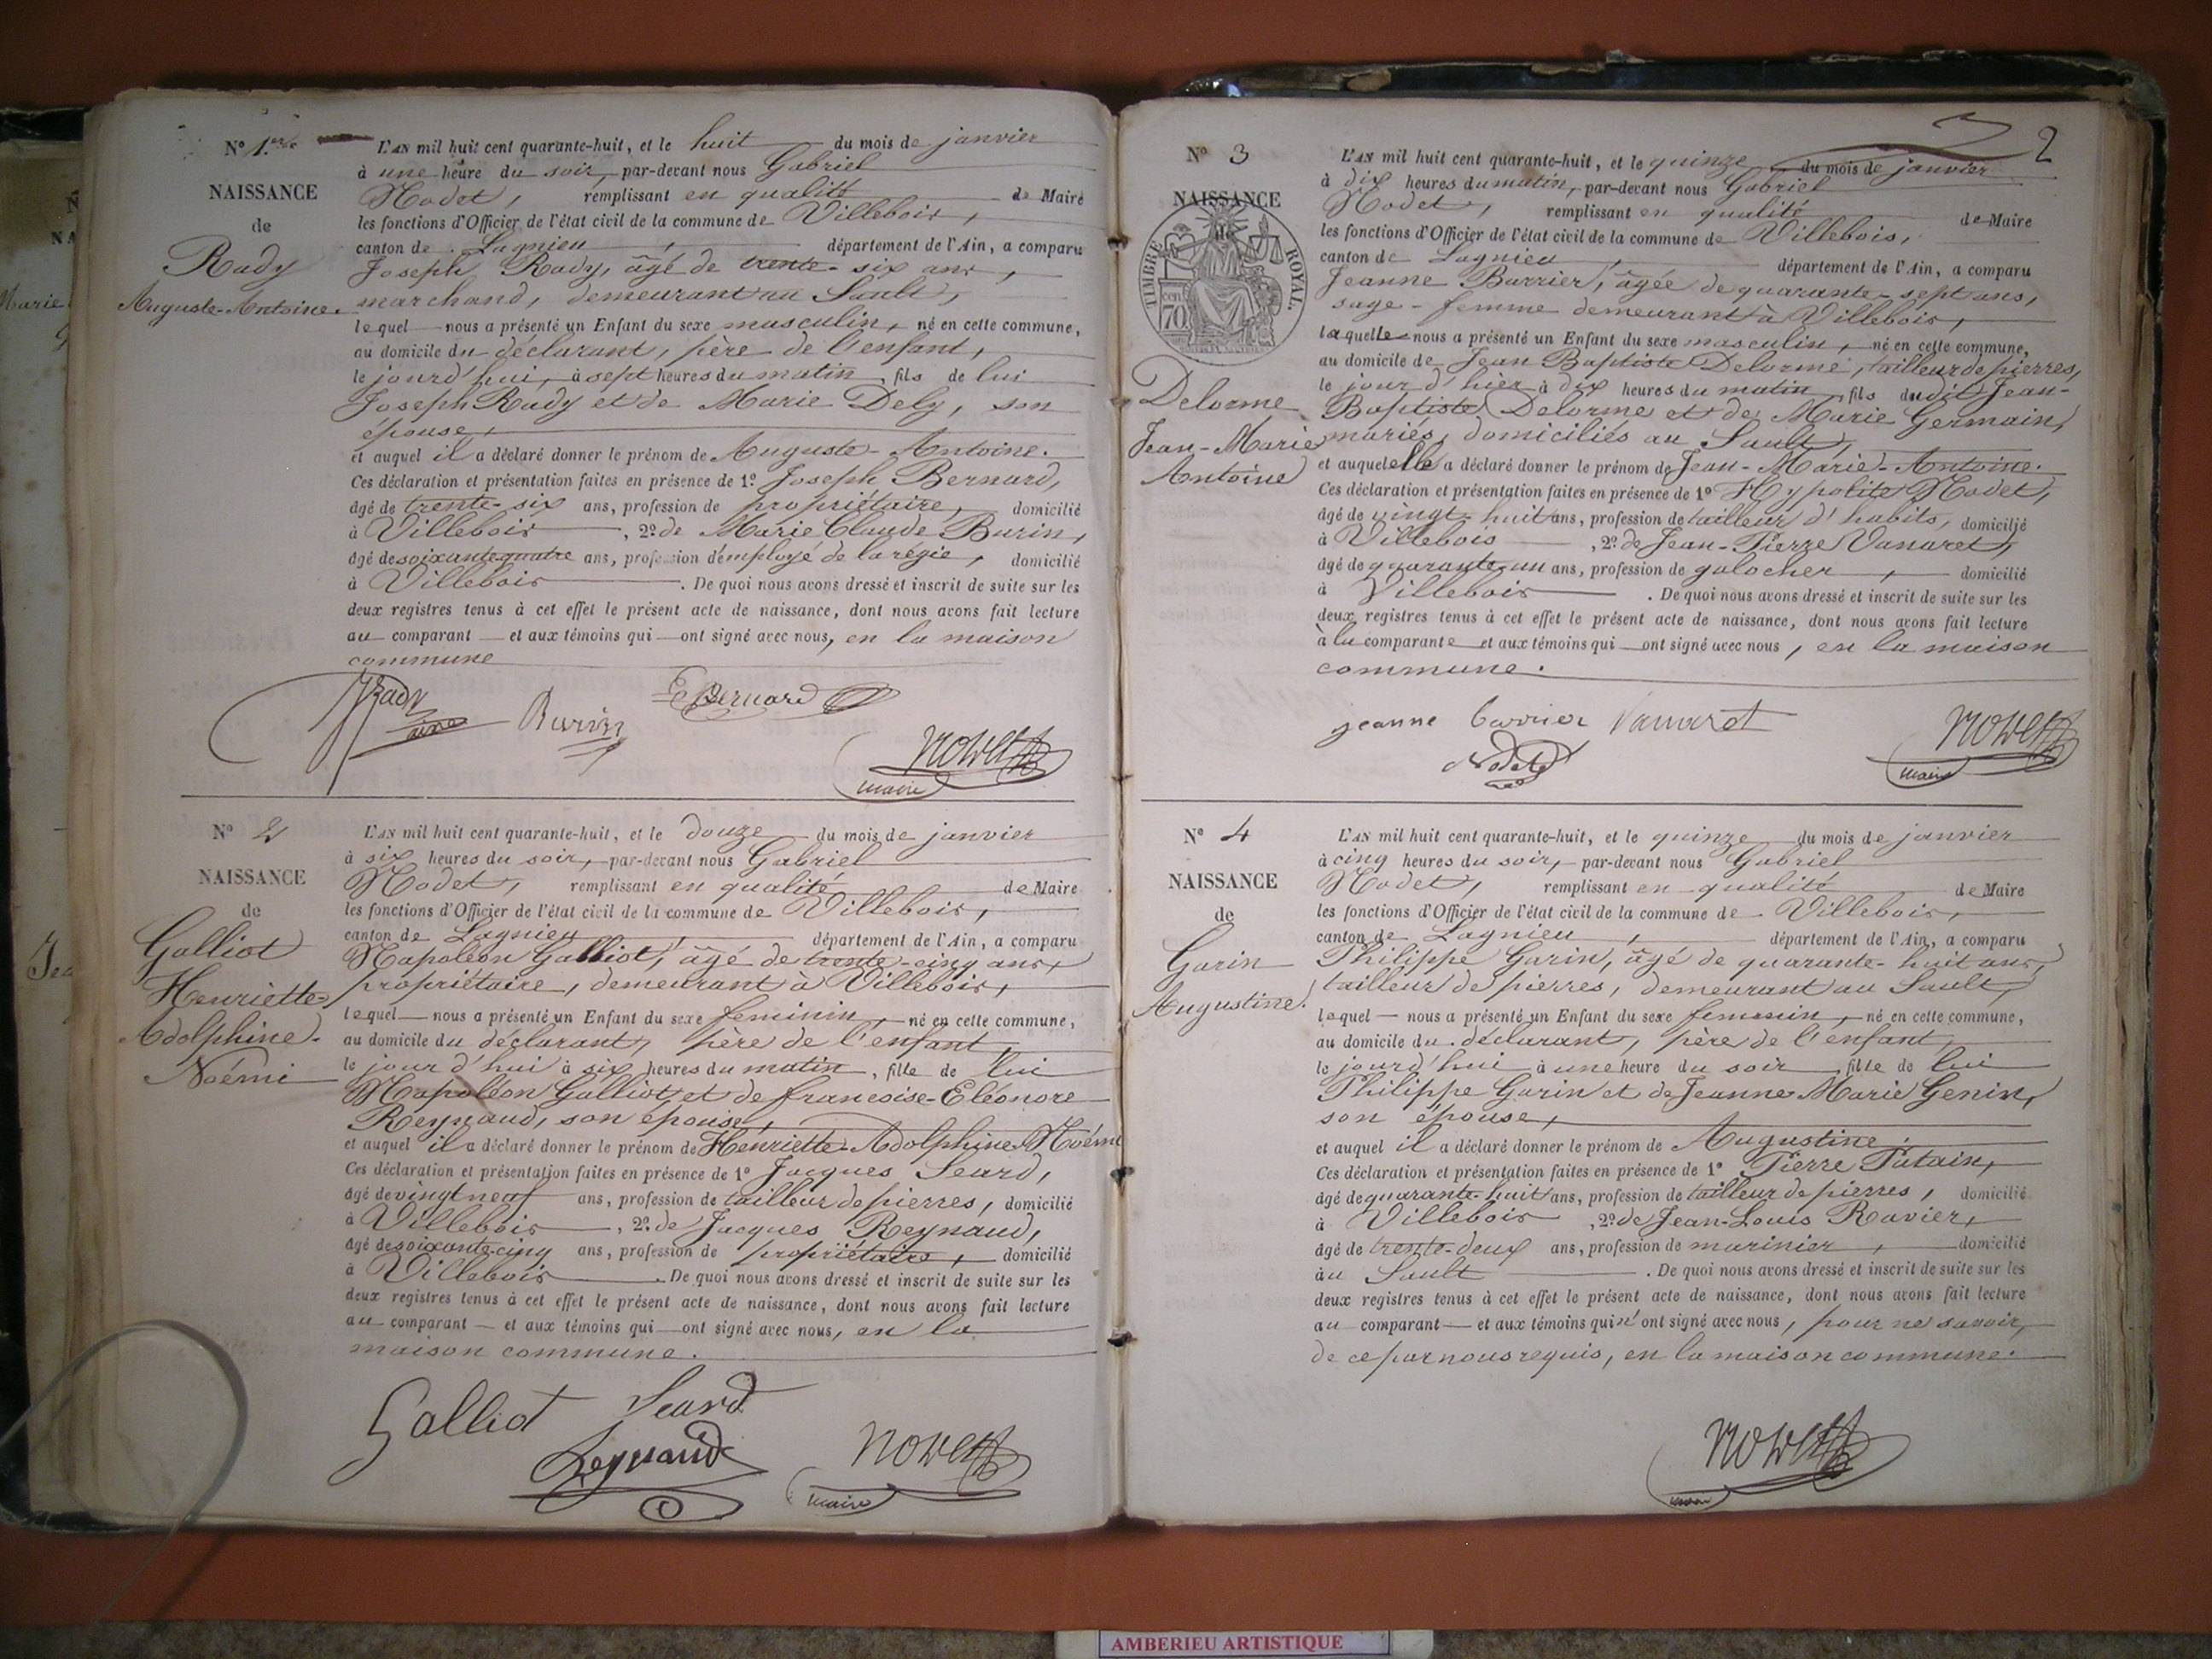 N° 1.er
NAISSANCE
de
Rady
Auguste-Antoine.
L'AN mil huit cent quarante-huit, et le huit du mois de janvier
à une heure du soir, par-devant nous Gabriel
Nodet, remplissant en qualité de Maire
les fonctions d'Officier de l'état civil de la commune de Villebois,
canton de Lagnieu, département de l'Ain, a comparu
Joseph Rady, âgé de trente-six ans,
marchand, demeurant au Sault,
lequel nous a présenté un Enfant du sexe masculin, né en cette commune,
au domicile du déclarant, père de l'enfant,
le jourd'hui, à sept heures du matin, fils de lui
Joseph Rady et de Marie Dely, son
épouse,
et auquel il a déclaré donner le prénom de Auguste-Antoine.
Ces déclaration et présentation faites en présence de 1° Joseph Bernard,
âgé de trente-six ans, profession de propriétaire, domicilié
à Villebois, 2° de Marie Claude Burin,
âgé de soixante quatre ans, profession d'employé de la régie, domicilié
à Villebois. De quoi nous avons dressé et inscrit de suite sur les
deux registres tenus à cet effet le présent acte de naissance, dont nous avons fait lecture
au comparant et aux témoins qui ont signé avec nous, en la maison
commune
Rady
ainé
Burin
Bernard
Nodet
maire
N° 2
NAISSANCE
de
Galliot
Henriette-
Adolphine-
Noémi
L'AN mil huit cent quarante-huit, et le douze du mois de janvier
à six heures du soir, par-devant nous Gabriel
Nodet, remplissant en qualité de Maire
les fonctions d'Officier de l'état civil de la commune de Villebois,
canton de Lagnieu, département de l'Ain, a comparu
Napoléon Galliot, âgé de trente-cinq ans,
propriétaire, demeurant à Villebois,
lequel nous a présenté un Enfant du sexe féminin, né en cette commune,
au domicile du déclarant, père de l'enfant,
le jour d'hui à six heures du matin, fille de lui
Napoléon Galliot et de francoise-Eléonore
Reynaud, son épouse,
et auquel il a déclaré donner le prénom de Henriette-Adolphine-Noémi
Ces déclaration et présentation faites en présence de 1° Jacques Seard,
âgé de vingt neuf ans, profession de tailleur de pierres, domicilié
à Villebois, 2° de Jacques Reynaud,
âgé de soixante-cinq ans, profession de propriétaire, domicilié
à Villebois. De quoi nous avons dressé et inscrit de suite sur les
deux registres tenus à cet effet le présent acte de naissance, dont nous avons fait lecture
au comparant et aux témoins qui ont signé avec nous, en la
maison commune.
Galliot
Seard
Reynaud
Nodet
maire
2
N° 3
NAISSANCE
TIMBRE ROYAL.
cen.
70
Delorme
Jean-Marie
Antoine
L'AN mil huit cent quarante-huit, et le quinze du mois de janvier
à dix heures du matin, par-devant nous Gabriel
Nodet, remplissant en qualité de Maire
les fonctions d'Officier de l'état civil de la commune de Villebois,
canton de Lagnieu, département de l'Ain, a comparu
Jeanne Barrier, âgée de quarante-sept ans,
sage-femme demeurant à Villebois,
laquelle nous a présenté un Enfant du sexe masculin, né en cette commune,
au domicile de Jean Baptiste Delorme, tailleur de pierres,
le jour d'hier à dix heures du matin, fils dudit Jean-
Baptiste Delorme et de Marie Germain,
mariés, domiciliés au Sault,
et auquel elle a déclaré donner le prénom de Jean-Marie-Antoine.
Ces déclaration et présentation faites en présence de 1° Hypolite Nodet,
âgé de vingt-huit ans, profession de tailleur d'habits, domicilié
à Villebois, 2° de Jean-Pierre Vanaret,
âgé de quarante-un ans, profession de galocher, domicilié
à Villebois. De quoi nous avons dressé et inscrit de suite sur les
deux registres tenus à cet effet le présent acte de naissance, dont nous avons fait lecture
à la comparante et aux témoins qui ont signé avec nous, en la maison
commune.
jeanne barrier
Vanaret
Nodet
Nodet
maire
N° 4
NAISSANCE
de
Garin
Augustine.
L'AN mil huit cent quarante-huit, et le quinze du mois de janvier
à cinq heures du soir, par-devant nous Gabriel
Nodet, remplissant en qualité de Maire
les fonctions d'Officier de l'état civil de la commune de Villebois,
canton de Lagnieu, département de l'Ain, a comparu
Philippe Garin, âgé de quarante-huit ans,
tailleur de pierres, demeurant au Sault,
lequel nous a présenté un Enfant du sexe feminin, né en cette commune,
au domicile du déclarant, père de l'enfant,
le jourd'hui à une heure du soir, fille de lui
Philippe Garin et de Jeanne Marie Genin,
son épouse,
et auquel il a déclaré donner le prénom de Augustine.
Ces déclaration et présentation faites en présence de 1° Pierre Putain,
âgé de quarante-huit ans, profession de tailleur de pierres, domicilié
à Villebois, 2° de Jean-Louis Ravier,
âgé de trente-deux ans, profession de marinier, domicilié
au Sault. De quoi nous avons dressé et inscrit de suite sur les
deux registres tenus à cet effet le présent acte de naissance, dont nous avons fait lecture
au comparant et aux témoins qui n'ont signé avec nous, pour ne savoir,
de ce par nous requis, en la maison commune.
Nodet
maire
AMBERIEU ARTISTIQUE